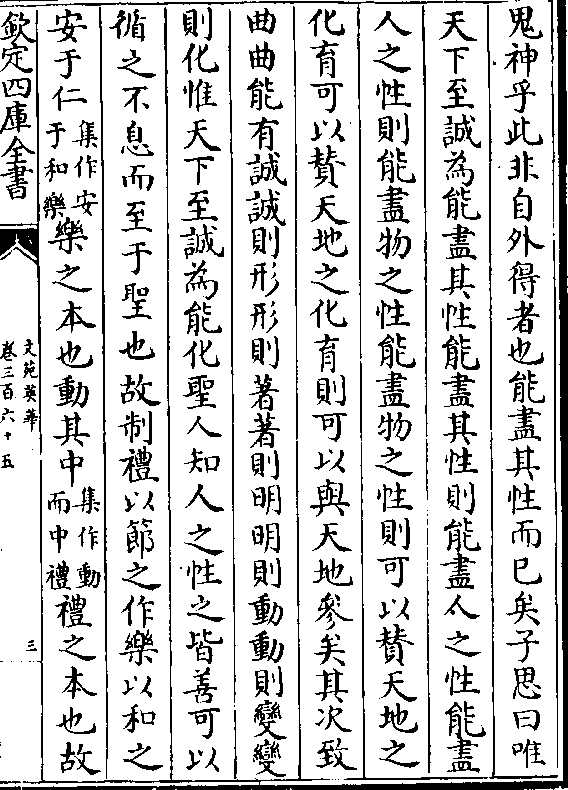 鬼神乎此非自外得者也能盡其性而已矣子思曰唯
天下至誠為能盡其性能盡其性則能盡人之性能盡
人之性則能盡物之性能盡物之性則可以贊天地之
化育可以贊天地之化育則可以與天地參矣其次致
曲曲能有誠誠則形形則著著則明明則動動則變變
則化惟天下至誠為能化聖人知人之性之皆善可以
循之不息而至于聖也故制禮以節之作樂以和之
安于仁集作安于和樂樂之本也動其中集作動而中禮禮之本也故
欽定四庫全書
文苑英華
卷三百六十五
三